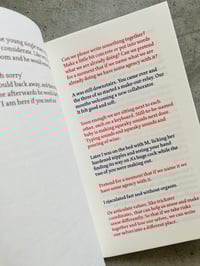 e young single
considerate. Like
oom and he would
h sorry'
ould back away, and
e afterwards he would
I am here if you need
Can we please write something together?
Make a little bit concrete or put into words
what we are already doing? Can we pretend
for a moment that if we name what we are
already doing we have some agency with it?
A was still downstairs. You came over and
the three of us started a make-out relay. Our
months welcoming a new collaborator.
It felt good and soft.
Soon enough we are sitting next to each
other, each on a keyboard. Still to be wanted
but making squeaky sounds together.
Typing sounds and squeaky sounds and
pouring of wine.
Later I was on the bed with M, licking her
hardened nipples and seeing your hand
finding its way on A's huge cock while the
two of you were making out.
Pretend for a moment that if we name it we
have some agency with it.
I ejaculated fast and without orgasm.
Or articulate values, like trickster
contributors, that can help us sense and make
sense differently. So that if we take risks
together and lose our selves, we can write
our selves into a different place.